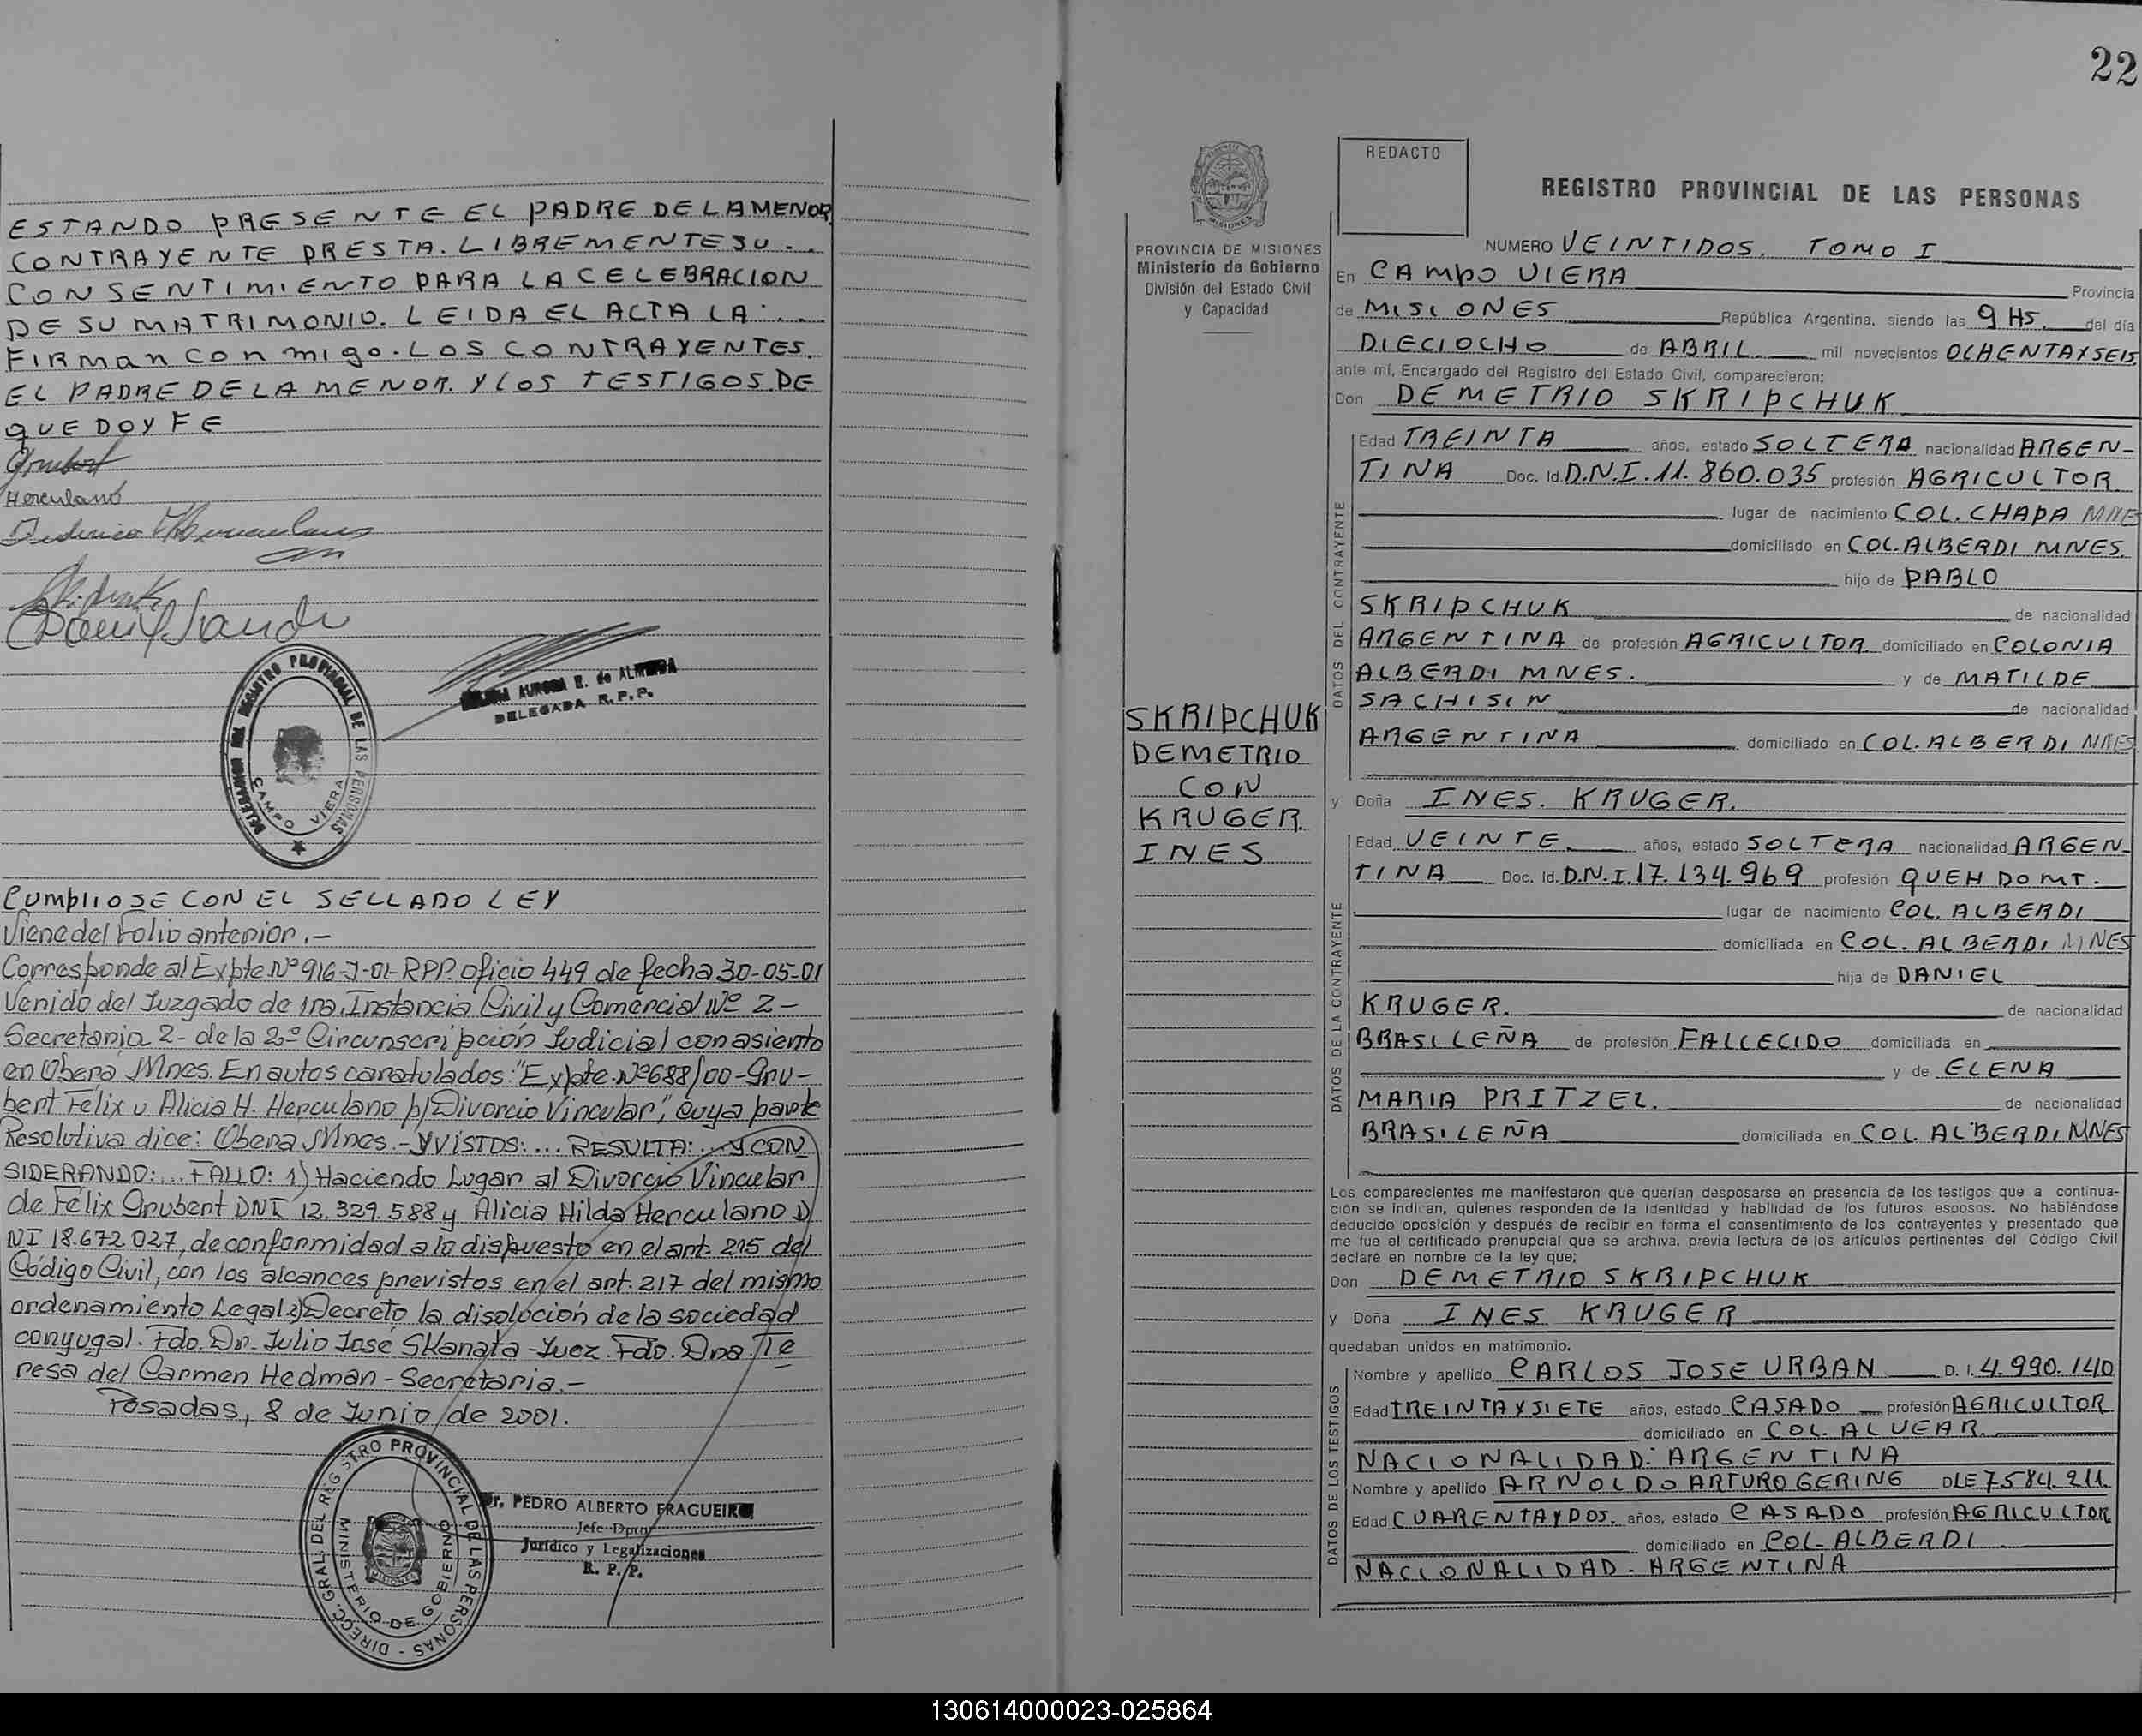 ESTANDO PRESENTE EL PADRE DE LA MENOR
CONTRAYENTE PRESTA. LIBREMENTE SU . .
CONSENTIMIENTO PARA LA CELEBRACION
DE SU MATRIMONIO. LEIDA EL ACTA LA . . .
FIRMAN CONMIGO. LOS CONTRAYENTES.
EL PADRE DE LA MENOR. Y LOS TESTIGOS. DE
QUE DOY FE
Grubert
Herculano
Federico Herculano
DELEGACION DEL REGISTRO PROVINCIAL DE LAS PERSONAS
CAMPO VIERA
AURORA R. de ALMEIDA
DELEGADA R.P.P.
CUMPLIOSE CON EL SELLADO LEY
Viene del Folio anterior.-
Corresponde al Expte Nº 916-J-01-RPP. oficio 449 de fecha 30-05-01
Venido del Juzgado de 1ra. Instancia Civil y Comercial Nº 2-
Secretaria 2- de la 2º Circunscripción Judicial con asiento
en Oberá Mnes. En autos caratulados: "Expte. Nº 688/00-Gru-
bert Felix v Alicia H. Herculano p/Divorcio Vincular", cuya parte
Resolutiva dice: Obera Mnes.- Y VISTOS: ... RESULTA: ... Y CON
SIDERANDO: ... FALLO: 1) Haciendo Lugar al Divorcio Vincular
de Félix Grubert DNI 12.329.588 y Alicia Hilda Herculano D
NI 18.672.027, de conformidad a lo dispuesto en el art. 215 del
Código Civil, con los alcances previstos en el art. 217 del mismo
ordenamiento Legal. 2) Decreto la disolución de la sociedad
conyugal. Fdo. Dr. Julio José Skanata - Juez. Fdo. Dra. Te
resa del Carmen Hedman - Secretaria.-
Posadas, 8 de Junio de 2001.
DIRECC. GRAL. DEL REGISTRO PROVINCIAL DE LAS PERSONAS -
MINISTERIO DE GOBIERNO
MISIONES
Dr. PEDRO ALBERTO FRAGUEIRO
Jefe Dpto.
Jurídico y Legalizaciones
R. P. P.
22
MISIONES
PROVINCIA DE MISIONES
Ministerio de Gobierno
División del Estado Civil
y Capacidad
SKRIPCHUK
DEMETRIO
CON
KRUGER.
INES
REDACTO
REGISTRO PROVINCIAL DE LAS PERSONAS
NUMERO VEINTIDOS. TOMO I
En CAMPO VIERA Provincia
de MISIONES República Argentina, siendo las 9 HS. del día
DIECIOCHO de ABRIL. mil novecientos OCHENTA Y SEIS
ante mí, Encargado del Registro del Estado Civil, comparecieron:
Don DEMETRIO SKRIPCHUK
DATOS DEL CONTRAYENTE
Edad TREINTA años, estado SOLTERA nacionalidad ARGEN-
TINA Doc. Id. D.N.I. 11.860.035 profesión AGRICULTOR
lugar de nacimiento COL. CHAPA MNES
domiciliado en COL. ALBERDI MNES.
hijo de PABLO
SKRIPCHUK de nacionalidad
ARGENTINA de profesión AGRICULTOR domiciliado en COLONIA
ALBERDI MNES. y de MATILDE
SACHISIN de nacionalidad
ARGENTINA domiciliado en COL. ALBERDI MNES
y Doña INES. KRUGER.
DATOS DE LA CONTRAYENTE
Edad VEINTE. años, estado SOLTERA nacionalidad ARGEN-
TINA Doc. Id. D.N.I. 17.134.969 profesión QUEH DOMT.
lugar de nacimiento COL. ALBERDI
domiciliada en COL. ALBERDI MNES
hija de DANIEL
KRUGER. de nacionalidad
BRASILEÑA de profesión FALLECIDO domiciliada en
y de ELENA
MARIA PRITZEL. de nacionalidad
BRASILEÑA domiciliada en COL. ALBERDI MNES
Los comparecientes me manifestaron que querían desposarse en presencia de los testigos que a continua-
ción se indican, quienes responden de la identidad y habilidad de los futuros esposos. No habiéndose
deducido oposición y después de recibir en forma el consentimiento de los contrayentes y presentado que
me fue el certificado prenupcial que se archiva, previa lectura de los artículos pertinentes del Código Civil
declaré en nombre de la ley que;
Don DEMETRIO SKRIPCHUK
y Doña INES KRUGER
quedaban unidos en matrimonio.
DATOS DE LOS TESTIGOS
Nombre y apellido CARLOS JOSE URBAN D. I. 4.990.140
Edad TREINTA Y SIETE años, estado CASADO profesión AGRICULTOR
domiciliado en COL. ALVEAR.
NACIONALIDAD: ARGENTINA
Nombre y apellido ARNOLDO ARTURO GERING DLE 7584.211.
Edad CUARENTA Y DOS. años, estado CASADO profesión AGRICULTOR
domiciliado en COL- ALBERDI
NACIONALIDAD - ARGENTINA
130614000023-025864